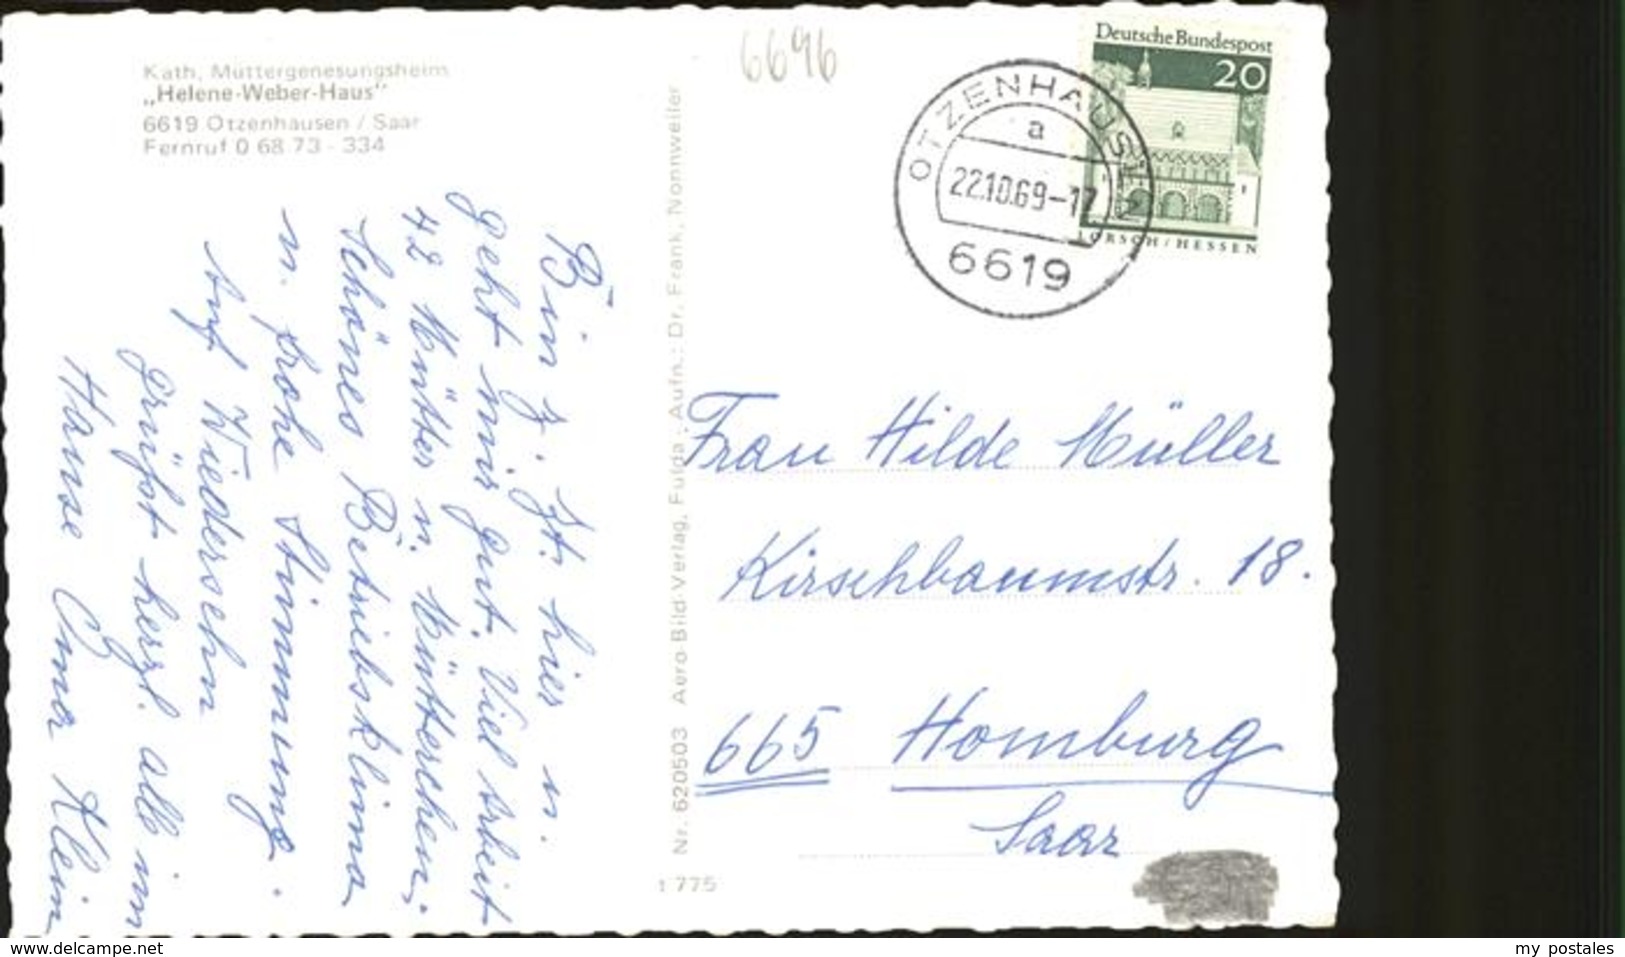 Kath. Müttergenesungsheim
„Helene-Weber-Haus"
6619 Otzenhausen / Saar
Fernruf 0 68 73 - 334
6696
OTZENHAUSEN
a
22.10.69-17
6619
Deutsche Bundespost
20
LORSCH / HESSEN
Bin z. Zt. hier u.
geht mir gut. Viel Arbeit
42 Mütter u. Mütterchen,
schönes Betriebsklima
u. frohe Stimmung.
Auf Wiedersehn
grüßt herzl. alle im
Hause Anna Klein
Nr. 620503 Aero-Bild-Verlag, Fulda . Aufn.: Dr. Frank, Nonnweiler
t 775
Frau Hilde Müller
Kirschbaumstr. 18.
665 Homburg
Saar
www.delcampe.net
my_postales